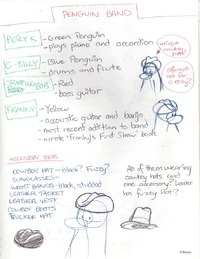 PENGUIN BAND
PETEY K
-Green Penguin
-plays piano and accordion
G-BILLY
-Blue Penguin
-drums and flute
-Red
-bass guitar
FRANKY
-Yellow
-acoustic guitar and banjo
-most recent addition to band
-wrote "Franky's First Show" book
COWBOY HAT-black? Fuzzy?
SUNGLASSES-
WRIST BANDS-black, studded
LEATHER JACKET
LEATHER VEST
COWBOY BOOTS
TRUCKER HAT
All of them wearing
cowboy hats and
one accessory? Leader
has fuzzy hat?